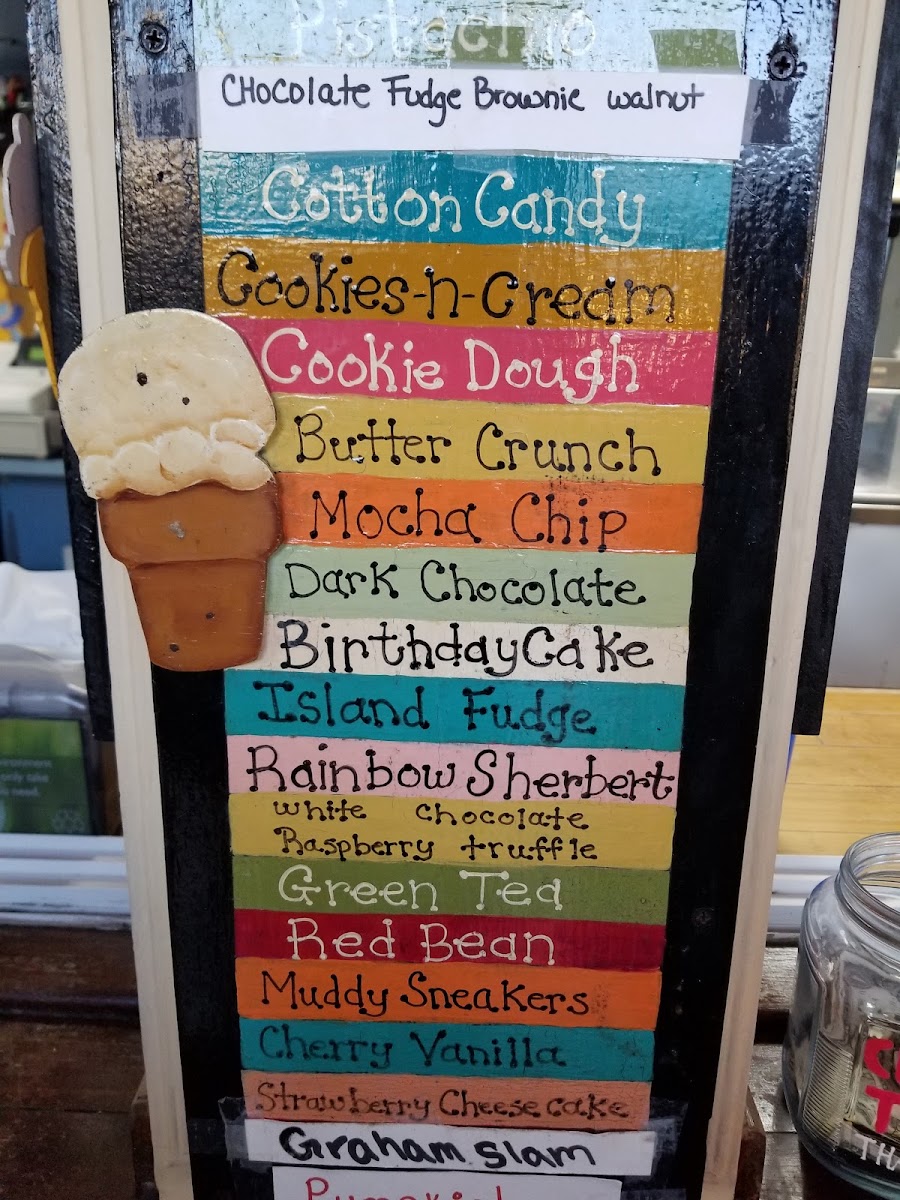 Pistachio
CHocolate Fudge Brownie walnut
Cotton Candy
Cookies-n-Cream
Cookie Dough
Butter Crunch
Mocha Chip
Dark Chocolate
Birthday Cake
Island Fudge
Rainbow Sherbert
white chocolate
Raspberry truffle
Green Tea
Red Bean
Muddy Sneakers
Cherry Vanilla
Strawberry Cheesecake
Graham Slam